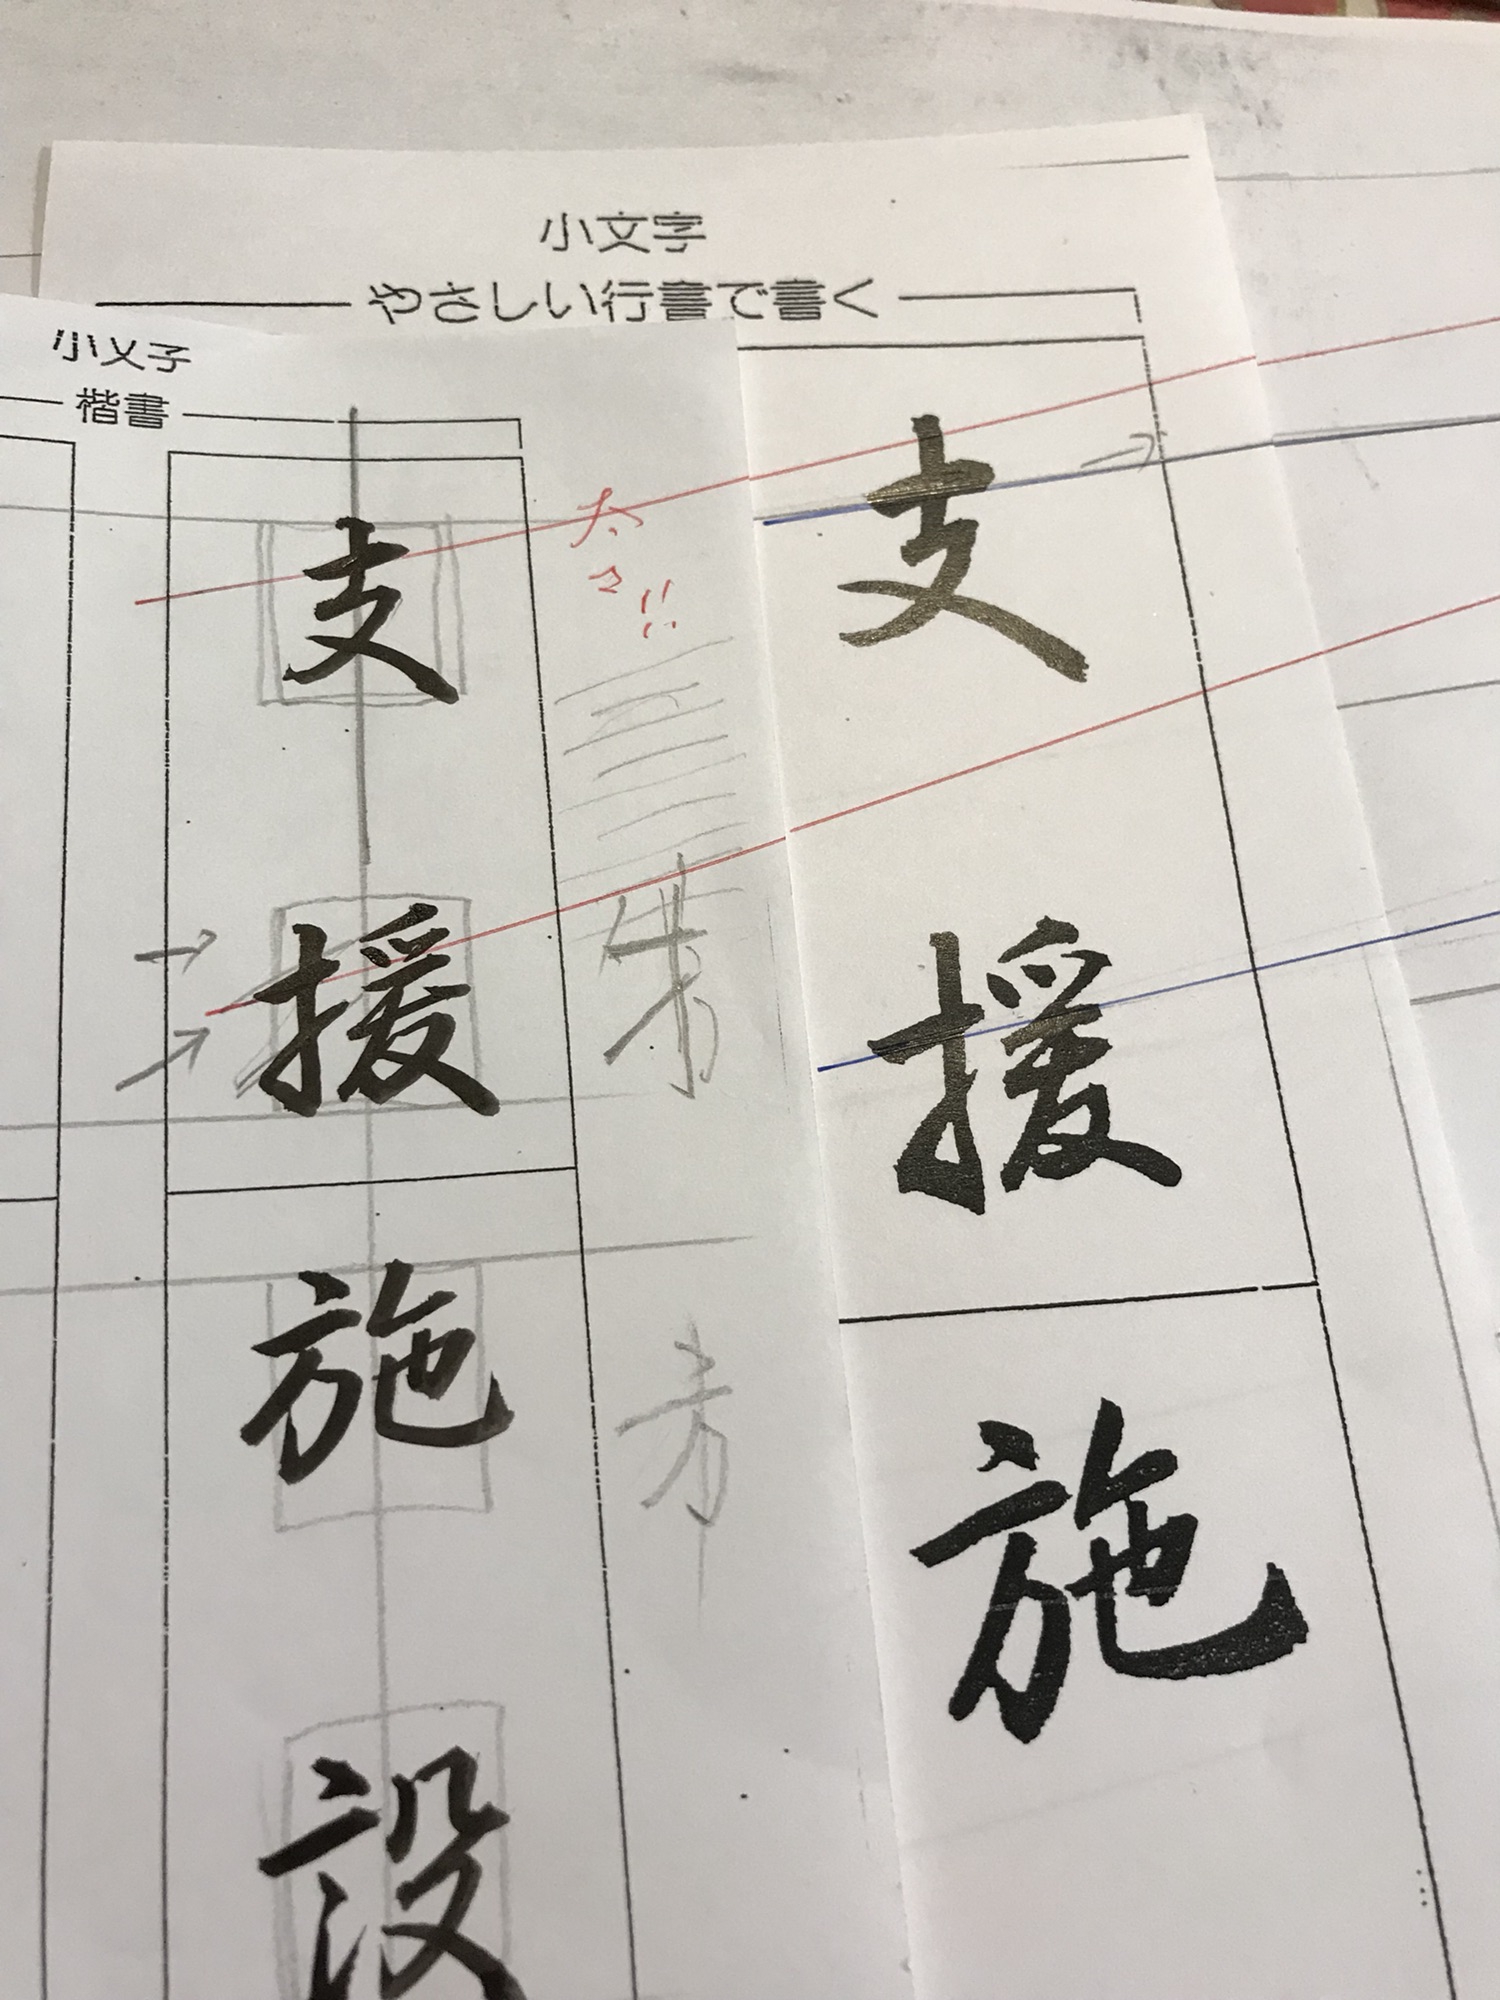 小文字
やさしい行書で書く
支
援
施
小文字
楷書
支
援
施
設
太
さ